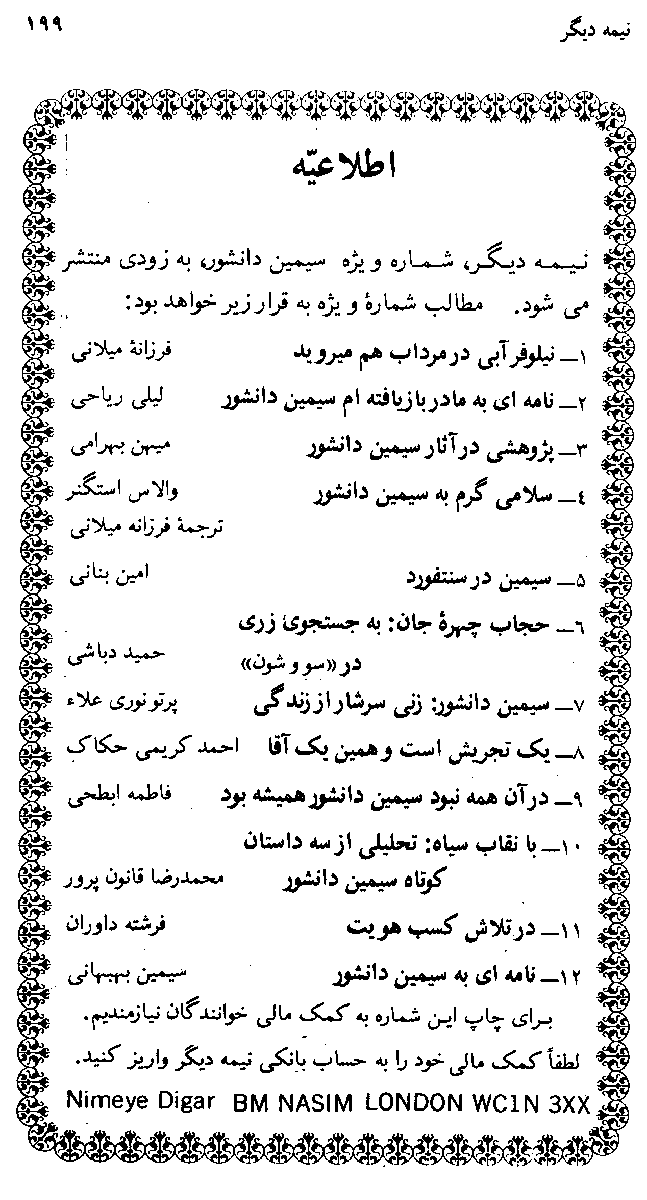 نیمه دیگر ۱۹۹
اطلاعیّه
نیمه دیگر، شماره ویژه سیمین دانشور، به زودی منتشر
می شود. مطالب شمارهٔ ویژه به قرار زیر خواهد بود:
۱ــ نیلوفر آبی در مرداب هم میروید فرزانهٔ میلانی
۲ــ نامه ای به مادر بازیافته ام سیمین دانشور لیلی ریاحی
۳ــ پژوهشی در آثار سیمین دانشور میهن بهرامی
۴ــ سلامی گرم به سیمین دانشور والاس استگنر
ترجمهٔ فرزانه میلانی
۵ــ سیمین در سنتفورد امین بنانی
۶ــ حجاب چهرهٔ جان: به جستجوی زری
در «سو و شون» حمید دباشی
۷ــ سیمین دانشور: زنی سرشار از زندگی پرتو نوری علاء
۸ــ یک تجریش است و همین یک آقا احمد کریمی حکاک
۹ــ در آن همه نبود سیمین دانشور همیشه بود فاطمه ابطحی
۱۰ــ با نقاب سیاه: تحلیلی از سه داستان
کوتاه سیمین دانشور محمدرضا قانون پرور
۱۱ــ در تلاش کسب هویت فرشته داوران
۱۲ــ نامه ای به سیمین دانشور سیمین بهبهانی
برای چاپ این شماره به کمک مالی خوانندگان نیازمندیم.
لطفاً کمک مالی خود را به حساب بانکی نیمه دیگر واریز کنید.
Nimeye Digar BM NASIM LONDON WC1N 3XX